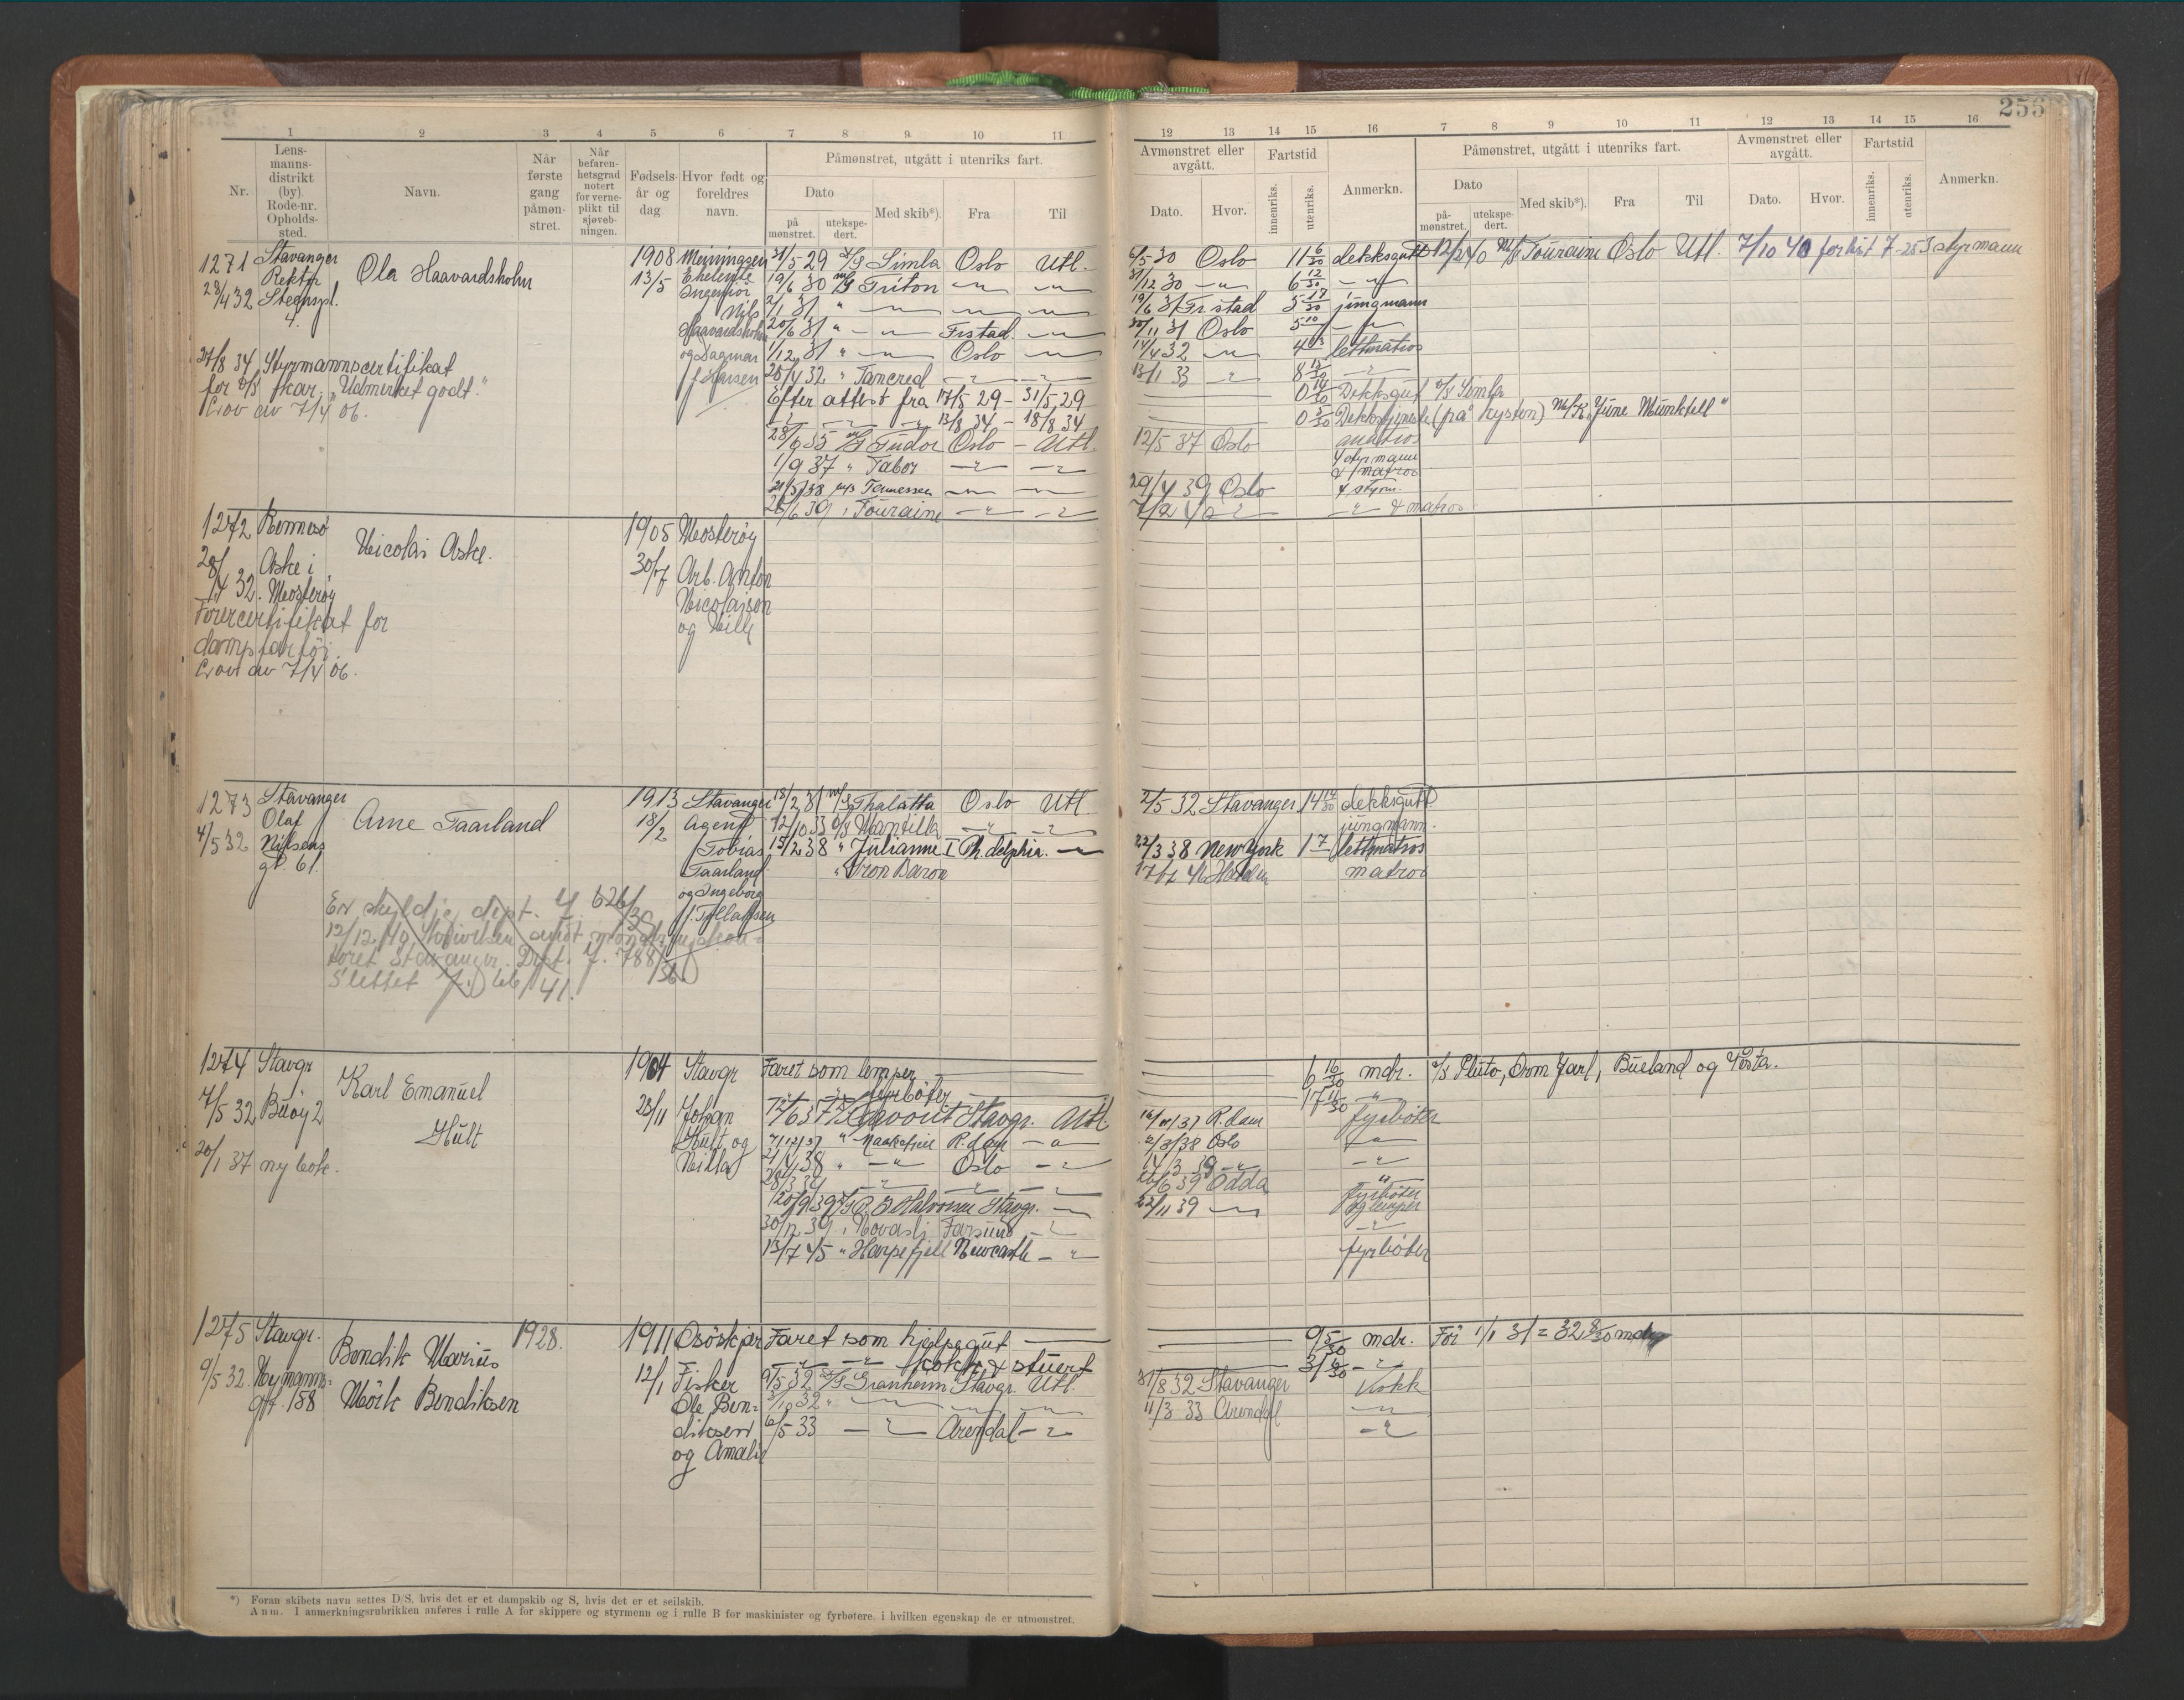 253
1 2 3 4 5 6 7 8 9 10 11
12 13 14 15 16 7 8 9 10 11 12 13 14 15 16
Nr.
Lens-
manns-
distrikt
(by).
Rode-nr.
Opholds-
sted.
Navn.
Når
første
gang
påmøn-
stret.
Når
befaren-
hetsgrad
notert
for verne-
plikt til
sjøveb-
ningen.
Fødsels-
år og
dag
Hvor født og
foreldres
navn.
Påmønstret, utgått i utenriks fart.
Dato
på
mønstret.
utekspe-
dert.
Med skib*).
Fra
Til
Avmønstret eller
avgått.
Dato.
Hvor.
Fartstid
innenriks.
utenriks.
Anmerkn.
Påmønstret, utgått i utenriks fart.
Dato
på-
mønstret.
utekspe-
dert.
Med skib*).
Fra
Til
Avmønstret eller
avgått.
Dato.
Hvor.
Fartstid
innenriks.
utenriks.
Anmerkn.
1271
28/4 32
Stavanger
Rektor
Steenspl.
4.
Ola Haavardsholm
1908
13/5
Ekelente
Ingeniør
Nils
Haavardsholm
og Dagmar
f. Larsen
27/8 34 Styrmannscertifikat
for D/S fkar. "Udmerket godt."
Lov av 7/4 06.
31/5 29 D/S Simla Oslo Utl.
19/6 30 M/S Triton
2/1 31 "
20/6 31 " Frstad.
1/12 31 " Oslo
28/4 32 " Tancred
Efter attest fra 17/5 29 - 31/5 29
13/8 34 - 18/8 34
28/6 35 M/S Tudor Oslo - Utl.
1/9 37 " Tabor
21/5 38 M/S Tennessee
26/6 39 " Touraine
6/5 30 Oslo 11 6/30 dekksgutt
31/12 30 6 12/30
19/6 31 Frstad 5 17/30 jungmann
30/11 31 Oslo 5 10
14/4 32 lettmatros
13/1 33
0 14/30 Dekksgut D/S Simla
Dekkstjeneste (på kysten) M/K "June Munktell"
12/5 37 Oslo
4 styrmann
& matros
29/4 39 Oslo 4 styrm.
7/2 40 & matros
M/S Touraine Oslo Utl. 7/10 40 forlist 7-253 styrmann
1272
28/4 32.
Rennesø
Aske i
Mosterøy
Nicolai Aske.
1905
30/7
Mosterøy
Arb. Anton
Nicolaison
og
Førercertifikat for
dampfartøi.
Lov av 7/4 06.
1273
4/5 32
Stavanger
Olaf
Nilsens
gt. 61.
Arne Taarland
1913
18/2
Stavanger
Agent
Tobias
Taarland
og Ingeborg
f. Tollaksen
18/2 31 M/S Thalatta Oslo Utl.
12/10 33 D/S Mantilla
15/2 38 " Julianne I Ph. delphia.
" Vron Baron
2/5 32 Stavanger 14 14/30 dekksgutt
jungmann.
22/3 38 New York 1 7 lettmatros
matros
Er skyldig dept.
Slettet
1274
7/5 32
20/1 37 ny bok.
Stavgr
Buøy 2
Karl Emanuel
Hult
1904
23/11
Stavgr
Johan
Hult og
Milla
Faret som lemper
fyrbøter
Stavgr. Utl.
7/12 37 " R.dam
21/4 38 " Oslo
28/3 39
20/9 39 D/S C. B. Halvorsen Stavgr.
30/12 39 " Farsund
13/7 45 " Harpefjell Newcastle - "
6 16/30 mdr. D/S Pluto, Orm Jarl, Bueland og Vesta.
17 11/30
R.dam fyrbøter
2/3 38 Oslo
14/3 39
Odda
22/11 39 fyrbøter
og lemper
fyrbøter
1275
9/5 32.
Stavgr.
Nymanns-
gt. 158
Bendik Marius
Mørk Bendiksen
1928.
1911
12/1
Osöskjær
Fisker
Ole Ben-
diksen
og Amalie
Faret som hjelpegut
kokk & stuert
9/5 32 D/S Granheim Stavgr. Utl.
3/10 32 "
6/5 33 Arendal
9 5/30 mdr. Før 1/1 31 = 32 8/30 mdr
31 6/30
31/8 32 Stavanger Kokk
11/3 33 Arendal
*) Foran skibets navn settes D/S, hvis det er et dampskib og S, hvis det er et seilskib.
Anm. I anmerkningsrubrikken anføres i rulle A for skippere og styrmenn og i rulle B for maskinister og fyrbøtere, i hvilken egenskap de er utmønstret.